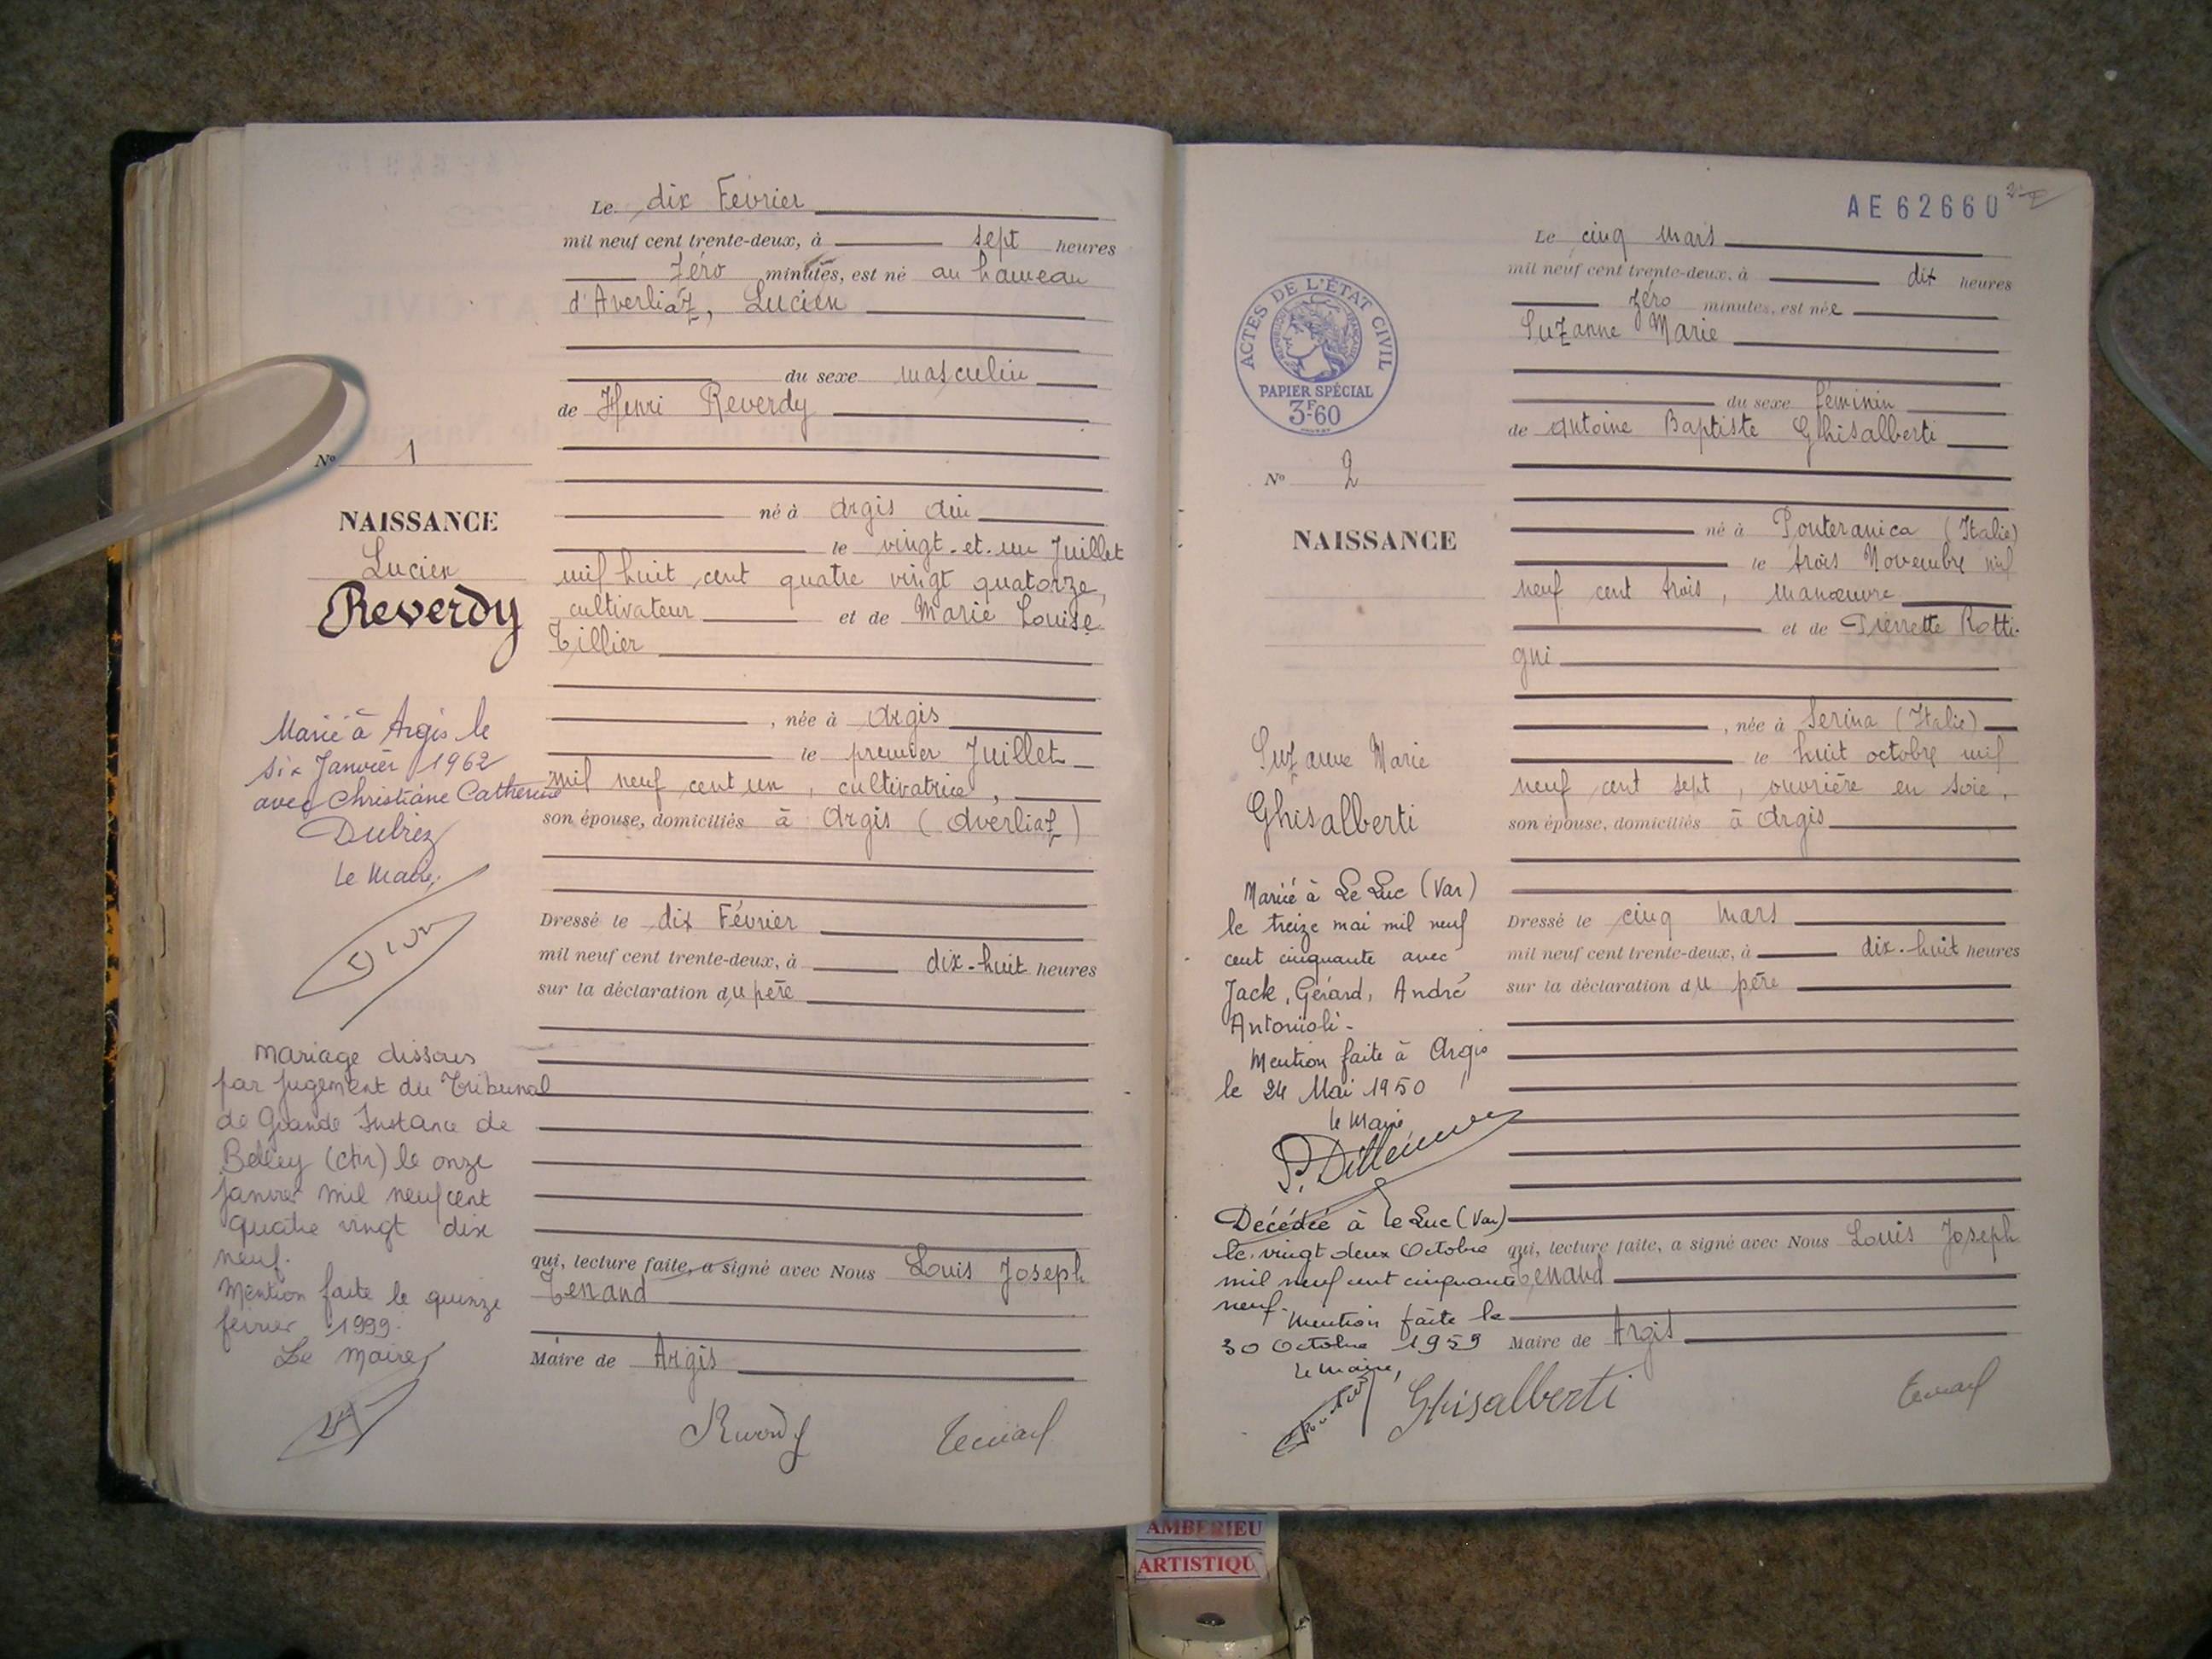 Le dix Février
mil neuf cent trente-deux, à sept heures
zéro minutes, est né au hameau
d'Averliaz, Lucien
du sexe masculin
de Henri Reverdy
né à Argis Ain
le vingt-et-un Juillet
mil huit cent quatre vingt quatorze,
cultivateur et de Marie Louise
Tillier
, née à Argis
le premier Juillet
mil neuf cent un, cultivatrice,
son épouse, domiciliés à Argis (Averliaz)
Dressé le dix Février
mil neuf cent trente-deux, à dix-huit heures
sur la déclaration du père
qui, lecture faite, a signé avec Nous Louis Joseph
Tenand
Maire de Argis
Reverdy Tenand
No 1
NAISSANCE
Lucien
Reverdy
Marié à Argis le
six Janvier 1962
avec Christiane Catherine
Dubiez
Le Maire,
mariage dissous
par jugement du Tribunal
de Grande Instance de
Belley (Ain) le onze
janvier mil neuf cent
quatre vingt dix
neuf.
Mention faite le quinze
février 1999.
Le Maire
AE62660
Le cinq Mars
mil neuf cent trente-deux, à dix heures
zéro minutes, est née
Suzanne Marie
du sexe féminin
de Antoine Baptiste Ghisalberti
né à Ponteranica (Italie)
le trois Novembre mil
neuf cent trois, manœuvre
et de Pierrette Rotti-
gni
, née à Serina (Italie)
le huit octobre mil
neuf cent sept, ouvrière en soie,
son épouse, domiciliés à Argis
Dressé le cinq Mars
mil neuf cent trente-deux, à dix-huit heures
sur la déclaration du père
qui, lecture faite, a signé avec Nous Louis Joseph
Tenand
Maire de Argis
Ghisalberti Tenand
ACTES DE L'ÉTAT CIVIL
RÉPUBLIQUE FRANÇAISE
PAPIER SPÉCIAL
3F60
No 2
NAISSANCE
Suzanne Marie
Ghisalberti
Mariée à Le Luc (Var)
le treize mai mil neuf
cent cinquante avec
Jack, Gérard, André
Antonioli-
Mention faite à Argis
le 24 Mai 1950
le Maire
Décédée à Le Luc (Var)
le vingt deux Octobre
mil neuf cent cinquante
neuf.
Mention faite le
30 Octobre 1959
le maire,
AMBERIEU
ARTISTIQU